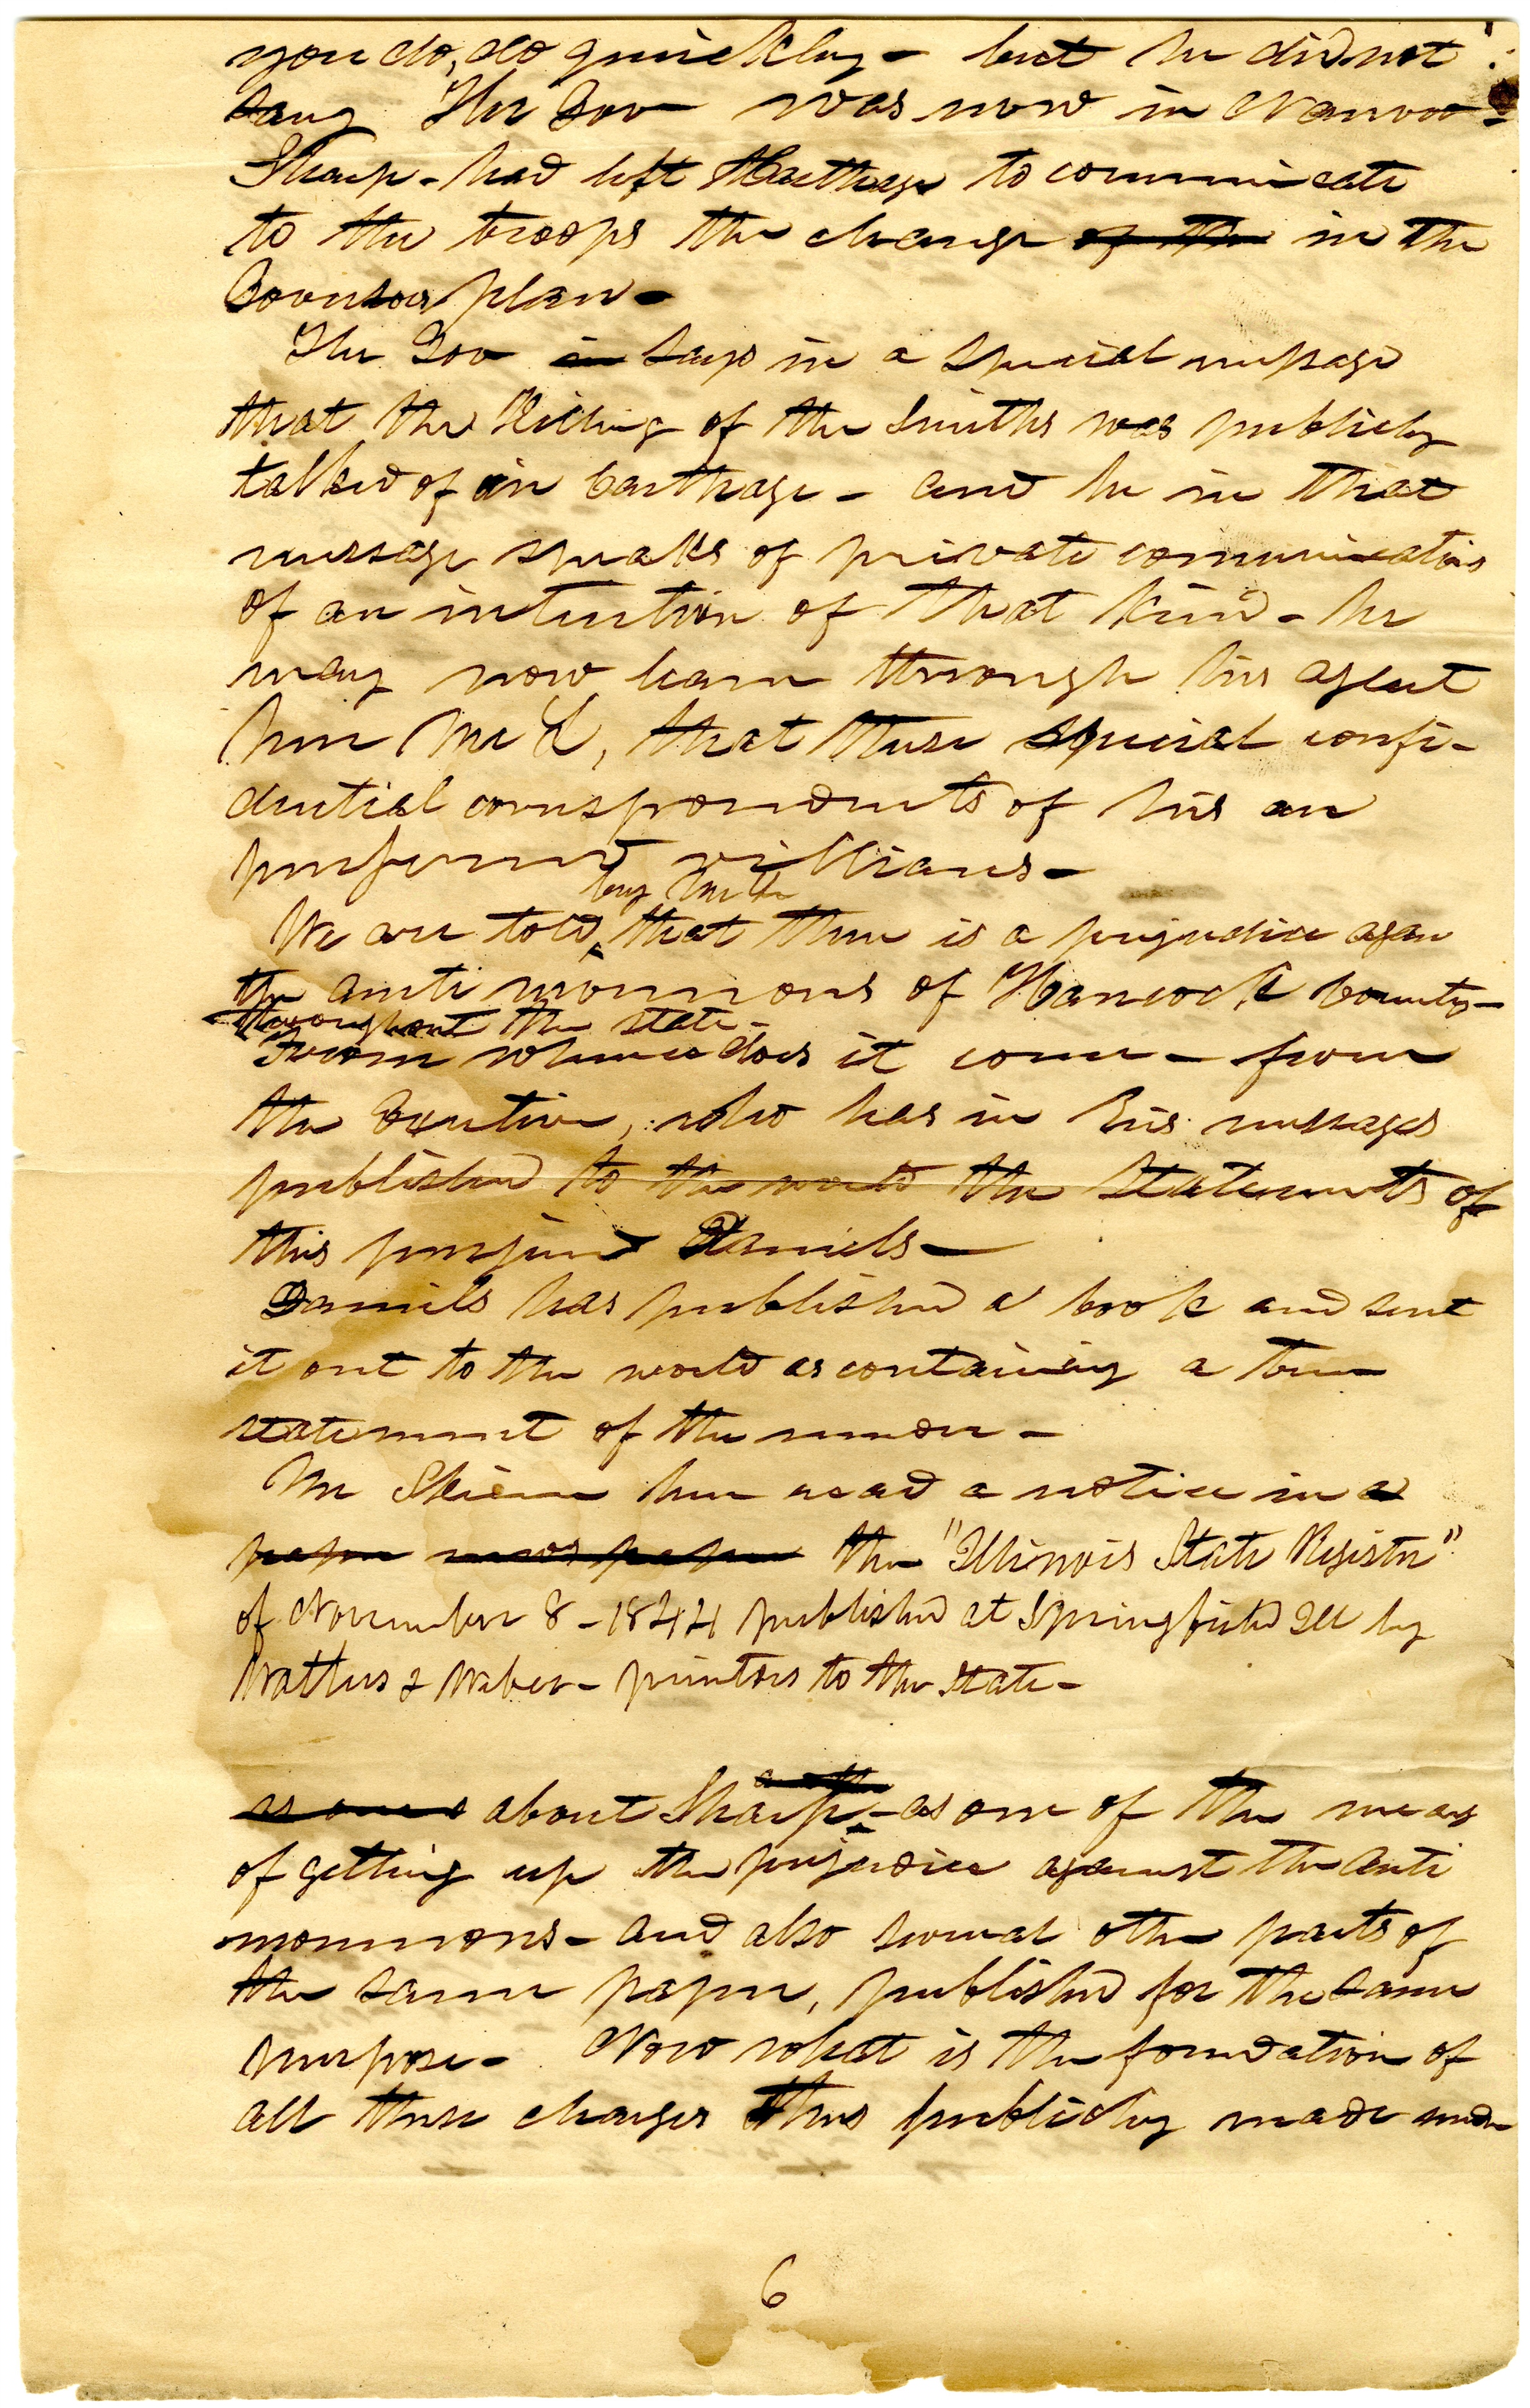 you do, do quickly - but he did not
say The Gov was now in Nauvoo -
Sharp - had left Carthage to communicate
to the troops the change of the in the
Governors plan -
The Gov in says in a special message
that the Killing of the Smiths was publicly
talked of in Carthage - and he in that
message speaks of private communications
of an intention of that kind - he
may now learn through his agent
here Mr L, that these special confi-
dential correspondents of his are
villians -
by Mr L
We are told that there is a prejudice again
the anti mormons of Hancock County -
throughout the state -
From whence does it come - from
the Exutive, who has in his messages
published to the world the statements of
this perjured Daniels -
Daniels has published a book and sent
it out to the world as containing a true
statement of the murder -
Mr Skinner here read a notice in a
paper news paper the "Illinois State Register"
of November 8 - 1844 published at Springfield Ill by
Walters & Weber - printers to the State -
about Sharp - as one of the means
of getting up the prejudice against the anti
mormons - and also several other parts of
the same paper, published for the same
purpose - Now what is the foundation of
all these charges thus publicly made under
6